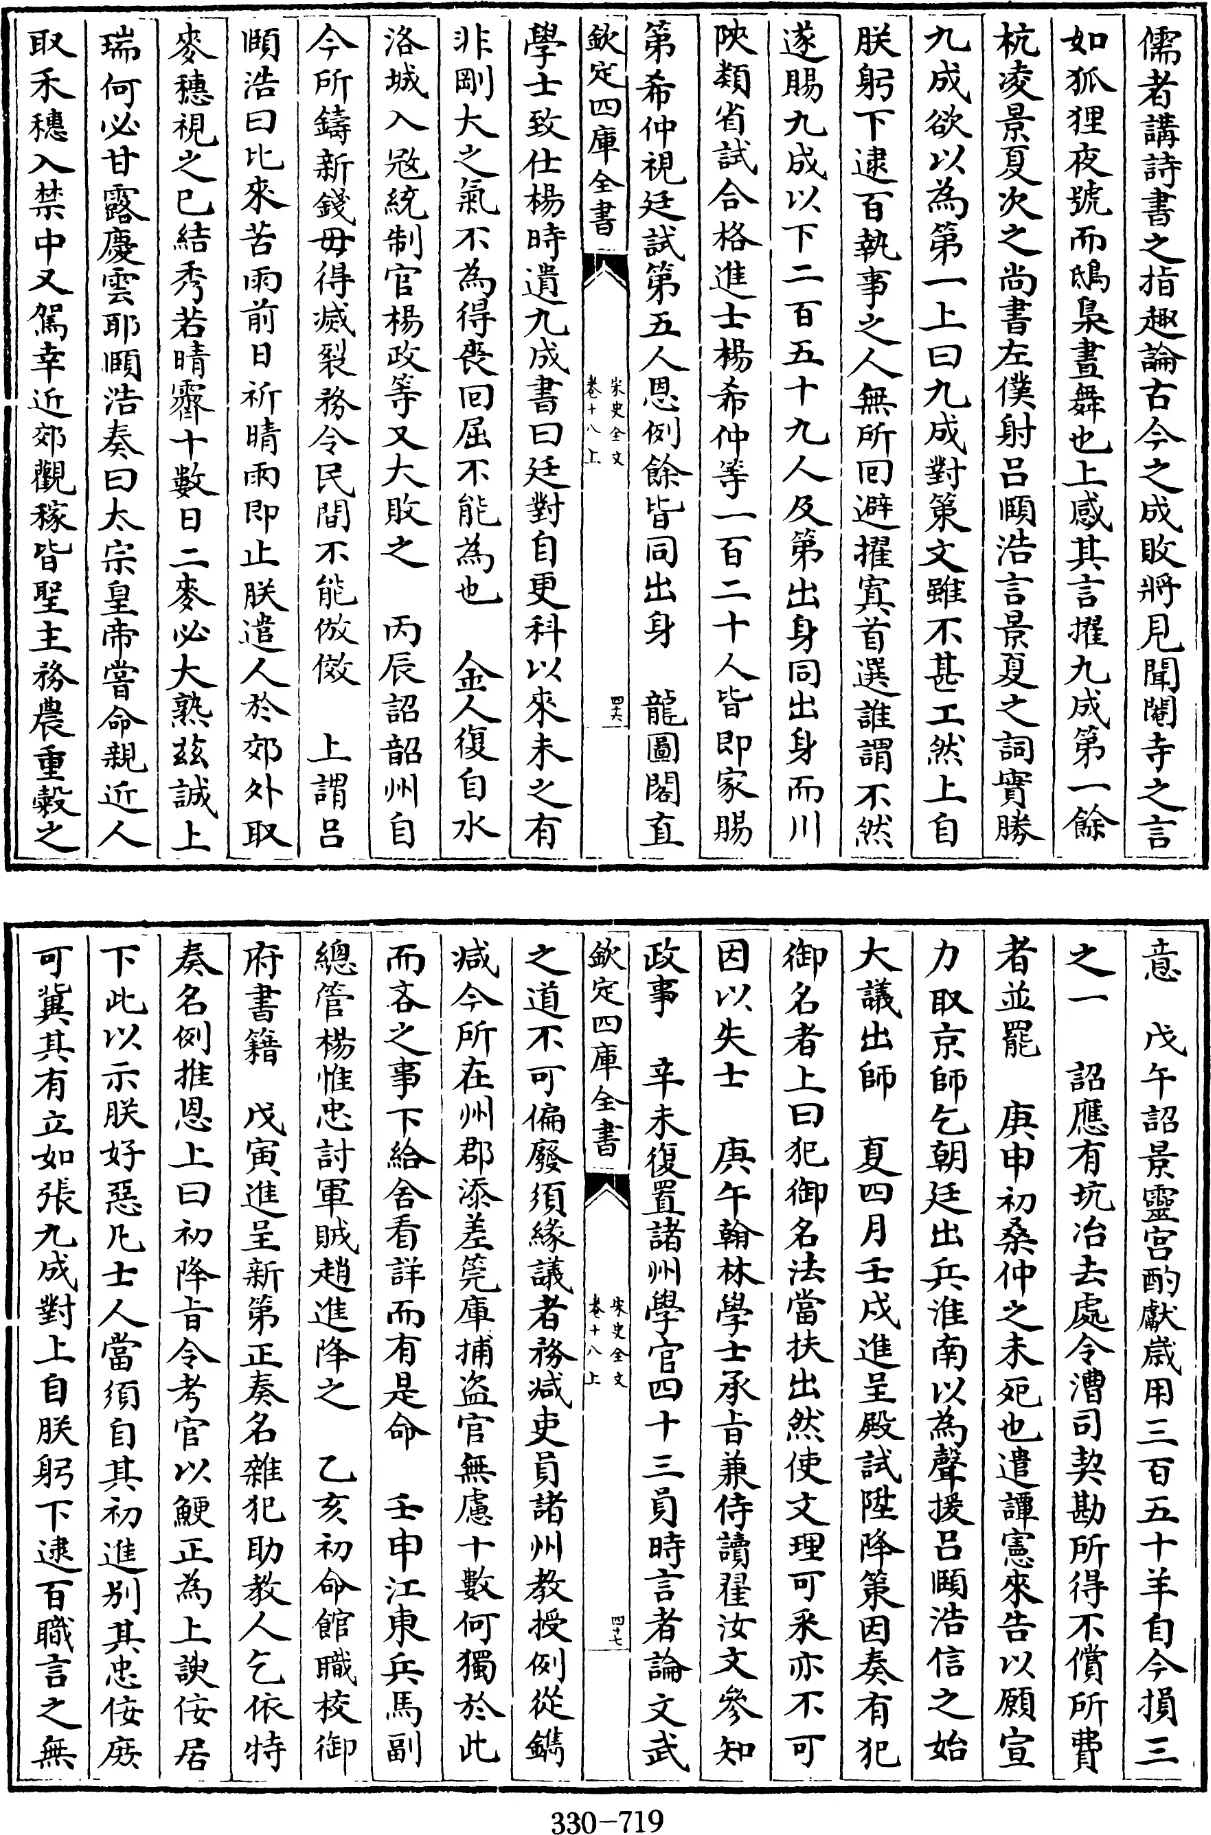 儒者講詩書之指趣論古今之成敗將見聞閹寺之言
如狐狸夜號而鴟梟晝舞也上感其言擢九成第一餘
杭凌景夏次之尚書左僕射呂頤浩言景夏之詞實勝
九成欲以為第一上曰九成對策文雖不甚工然上自
朕躬下逮百執事之人無所回避擢寘首選誰謂不然
遂賜九成以下二百五十九人及第出身同出身而川
陜類省試合格進士楊希仲等一百二十人皆即家賜
第希仲視廷試第五人恩例餘皆同出身　龍圖閣直
欽定四庫全書
宋史全文
卷十八上
四六
學士致仕楊時遺九成書曰廷對自更科以來未之有
非剛大之氣不為得喪回屈不能為也　金人復自水
洛城入寇統制官楊政等又大敗之　丙辰詔韶州自
今所鑄新錢毋得減裂務令民間不能倣傚　上謂呂
頤浩曰比來苦雨前日祈晴雨即止朕遣人於郊外取
麥穗視之已結秀若晴霽十數日二麥必大熟兹誠上
瑞何必甘露慶雲耶頤浩奏曰太宗皇帝嘗命親近人
取禾穗入禁中又駕幸近郊觀稼皆聖主務農重穀之
意　戊午詔景靈宫酌獻歲用三百五十羊自今損三
之一　詔應有坑冶去處令漕司契勘所得不償所費
者並罷　庚申初桑仲之未死也遣譚憲來告以願宣
力取京師乞朝廷出兵淮南以為聲援呂頤浩信之始
大議出師　夏四月壬戌進呈殿試陞降策因奏有犯
御名者上曰犯御名法當扶出然使文理可采亦不可
因以失士　庚午翰林學士承旨兼侍讀翟汝文參知
政事　辛未復置諸州學官四十三員時言者論文武
欽定四庫全書
宋史全文
卷十八上
四七
之道不可偏廢須緣議者務減吏員諸州教授例從鐫
減今所在州郡添差筦庫捕盜官無慮十數何獨於此
而吝之事下給舍看詳而有是命　壬申江東兵馬副
總管楊惟忠討軍賊趙進降之　乙亥初命館職校御
府書籍　戊寅進呈新第正奏名雜犯助教人乞依特
奏名例推恩上曰初降旨令考官以鯁正為上諛佞居
下此以示朕好惡凡士人當須自其初進别其忠佞庶
可冀其有立如張九成對上自朕躬下逮百職言之無
330-719